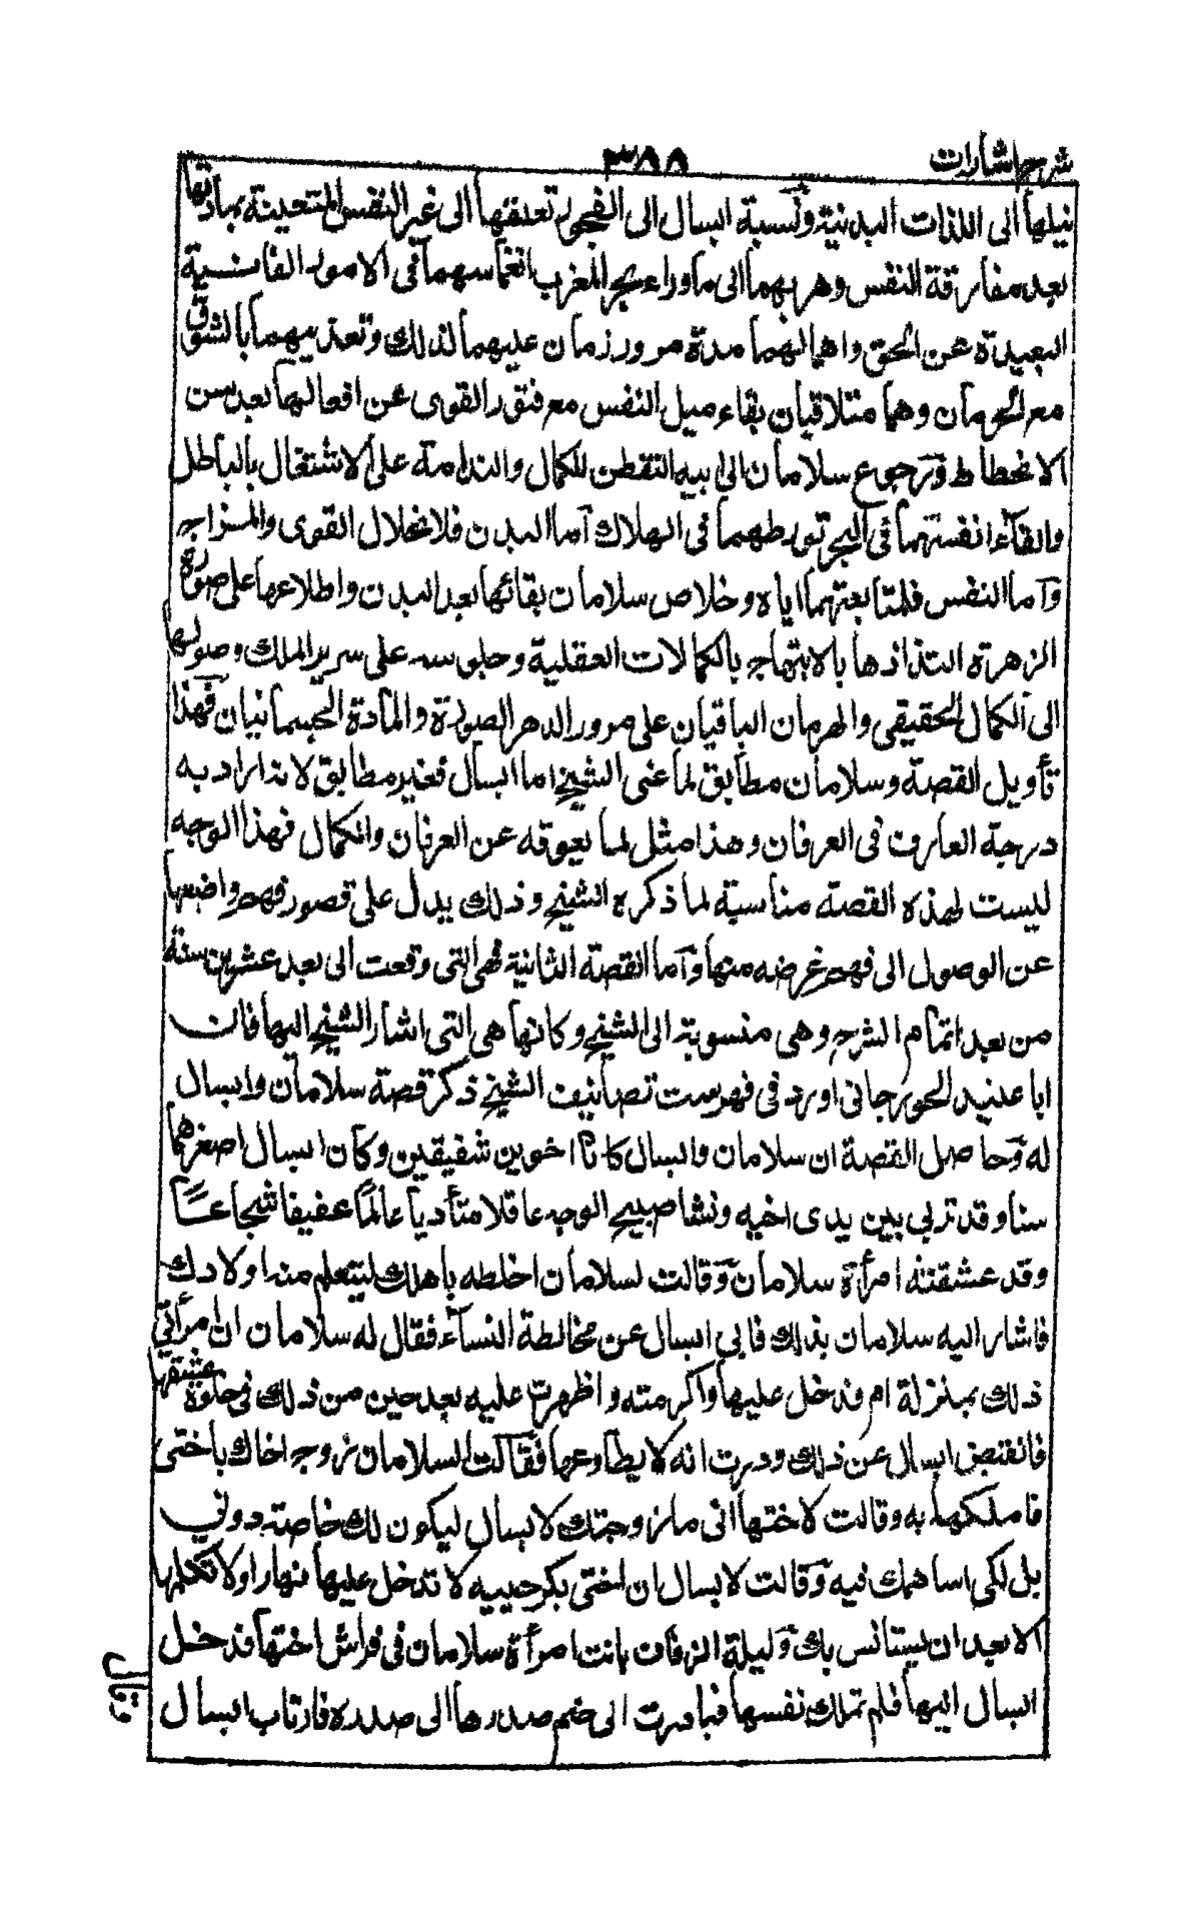 شرح اشارات
٣٨٨
نيلها الى اللذات البدنية ونسبة ابسال الى الفجور تعلقها الى غير النفس المتعينة بمادتها
بعد مفارقة النفس وهربهما الى ما وراء بحر المغرب انغماسهما فى الامور الفانسية
البعيدة عن الحق واهمالهما مدة مرور زمان عليهما لذلك وتعذيبهما بالشوق
مع الحرمان وهما متلاقيان بقاء ميل النفس مع فتور القوى عن افعالها بعد سن
الانحطاط ورجوع سلامان الى ابيه التفطن للكمال والندامة على الاشتغال بالباطل
والقاء انفسهما فى البحر تورطهما فى الهلاك اما البدن فلانحلال القوى والمزاج
واما النفس فلمتابعتهما اياه وخلاص سلامان بقائها بعد البدن واطلاعها على صورة
الزهرة التذاذها بالابتهاج بالكمالات العقلية وجلوسه على سرير الملك وصولها
الى الكمال الحقيقى والهرمان الباقيان على مرور الدهر الصورة والمادة الجسمانيان فهذا
تأويل القصة وسلامان مطابق لما عنى الشيخ اما ابسال فغير مطابق لانه اراد به
درجة العارف فى العرفان وهذا مثل لما يعوقه عن العرفان والكمال فهذا الوجه
ليست لهذه القصة مناسبة لما ذكره الشيخ وذلك يدل على قصور فهم واضعها
عن الوصول الى فهم غرضه منها واما القصة الثانية فهى التى وقعت الى بعد عشرين سنة
من بعد اتمام الشرح وهى منسوبة الى الشيخ وكانها هى التى اشار الشيخ اليها فان
ابا عبيد الجوزجانى اورد فى فهرست تصانيف الشيخ ذكر قصة سلامان وابسال
له وحاصل القصة ان سلامان وابسال كانا اخوين شفيقين وكان ابسال اصغرهما
سنا وقد تربى بين يدى اخيه ونشا صبيح الوجه عاقلا متأدبا عالما عفيفا شجاعا
وقد عشقته امرأة سلامان وقالت لسلامان اخلطه باهلك ليتعلم منه اولادك
فاشار اليه سلامان بذلك فابى ابسال عن مخالطة النساء فقال له سلامان ان امرأتى
ذلك بمنزلة ام فدخل عليها واكرمته واظهرت عليه بعد حين من ذلك فى خلوة عشقها
فانقبض ابسال عن ذلك ودرت انه لا يطاوعها فقالت لسلامان زوج اخاك باختى
فاملكها به وقالت لاختها انى ما زوجتك لابسال ليكون لك خاصة دونى
بل لكى اساهمك فيه وقالت لابسال ان اختى بكر حييه لا تدخل عليها نهارا ولا تكلمها
الا بعد ان يستانس بك وليلة الزفاف باتت امرأة سلامان فى فراش اختها فدخل
ابسال اليها فلم تملك نفسها فبادرت الى ضم صدرها الى صدره فارتاب ابسال
وقال